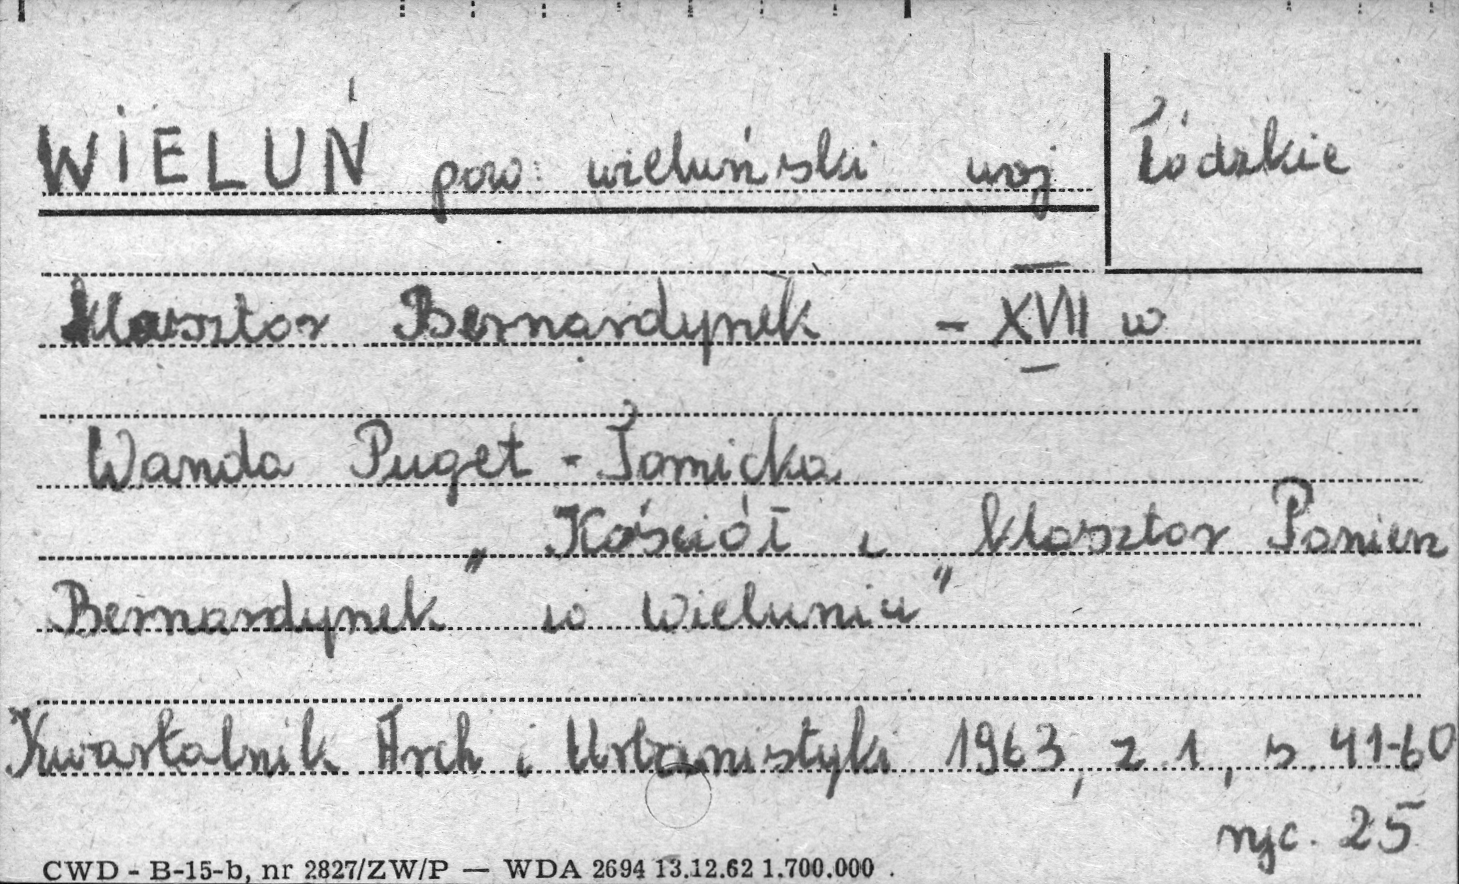 WIELUŃ pow. wieluński woj Łódzkie
Klasztor Bernardynek - XVII w
Wanda Puget-Tomicka
„Kościół i klasztor Panien
Bernardynek w Wieluniu"
Kwartalnik Arch i Urbanistyki 1963, z 1, s. 41-60
ryc. 25
CWD - B-15-b, nr 2827/ZW/P — WDA 2694 13.12.62 1.700.000.